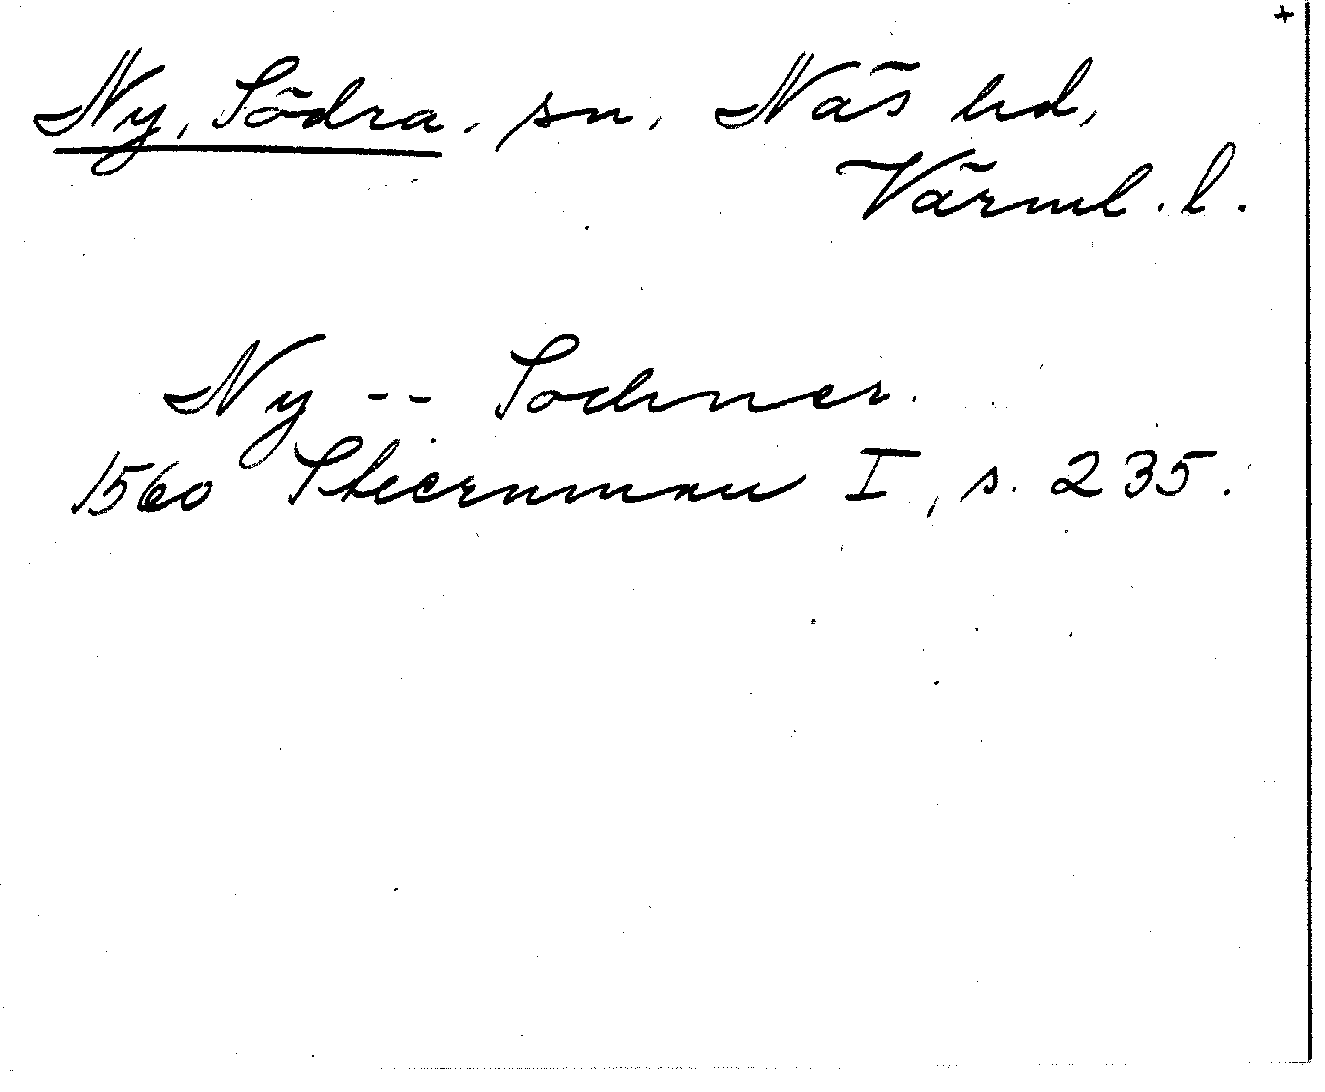 +
Ny, Södra. sn, Näs hd,
Värml. l.
Ny -- Sochner.
1560 Stiernman I, s. 235.